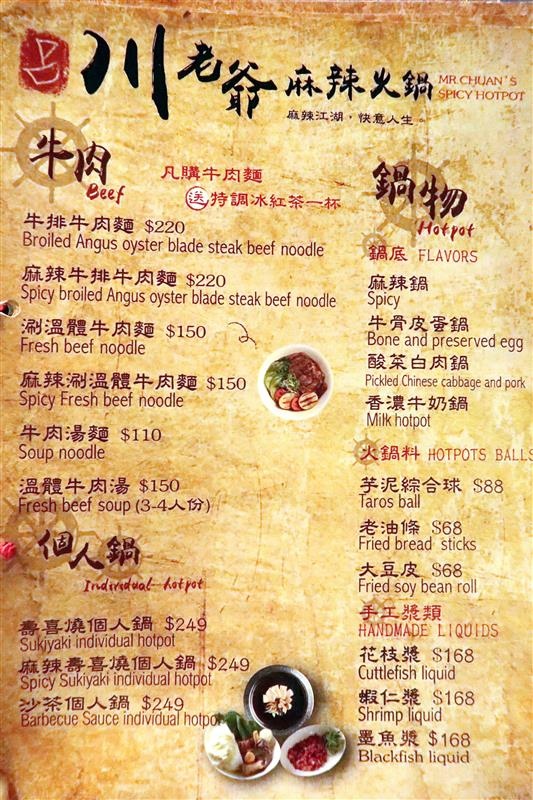 川老爺麻辣火鍋
MR.CHUAN'S
SPICY HOTPOT
麻辣江湖，快意人生。
牛肉
Beef
凡購牛肉麵
送特調冰紅茶一杯
牛排牛肉麵 $220
Broiled Angus oyster blade steak beef noodle
麻辣牛排牛肉麵 $220
Spicy broiled Angus oyster blade steak beef noodle
涮溫體牛肉麵 $150
Fresh beef noodle
麻辣涮溫體牛肉麵 $150
Spicy Fresh beef noodle
牛肉湯麵 $110
Soup noodle
溫體牛肉湯 $150
Fresh beef soup (3-4人份)
個人鍋
Individual hotpot
壽喜燒個人鍋 $249
Sukiyaki individual hotpot
麻辣壽喜燒個人鍋 $249
Spicy Sukiyaki individual hotpot
沙茶個人鍋 $249
Barbecue Sauce individual hotpot
鍋物
Hotpot
鍋底 FLAVORS
麻辣鍋
Spicy
牛骨皮蛋鍋
Bone and preserved egg
酸菜白肉鍋
Pickled Chinese cabbage and pork
香濃牛奶鍋
Milk hotpot
火鍋料 HOTPOTS BALLS
芋泥綜合球 $88
Taros ball
老油條 $68
Fried bread sticks
大豆皮 $68
Fried soy bean roll
手工漿類
HANDMADE LIQUIDS
花枝漿 $168
Cuttlefish liquid
蝦仁漿 $168
Shrimp liquid
墨魚漿 $168
Blackfish liquid